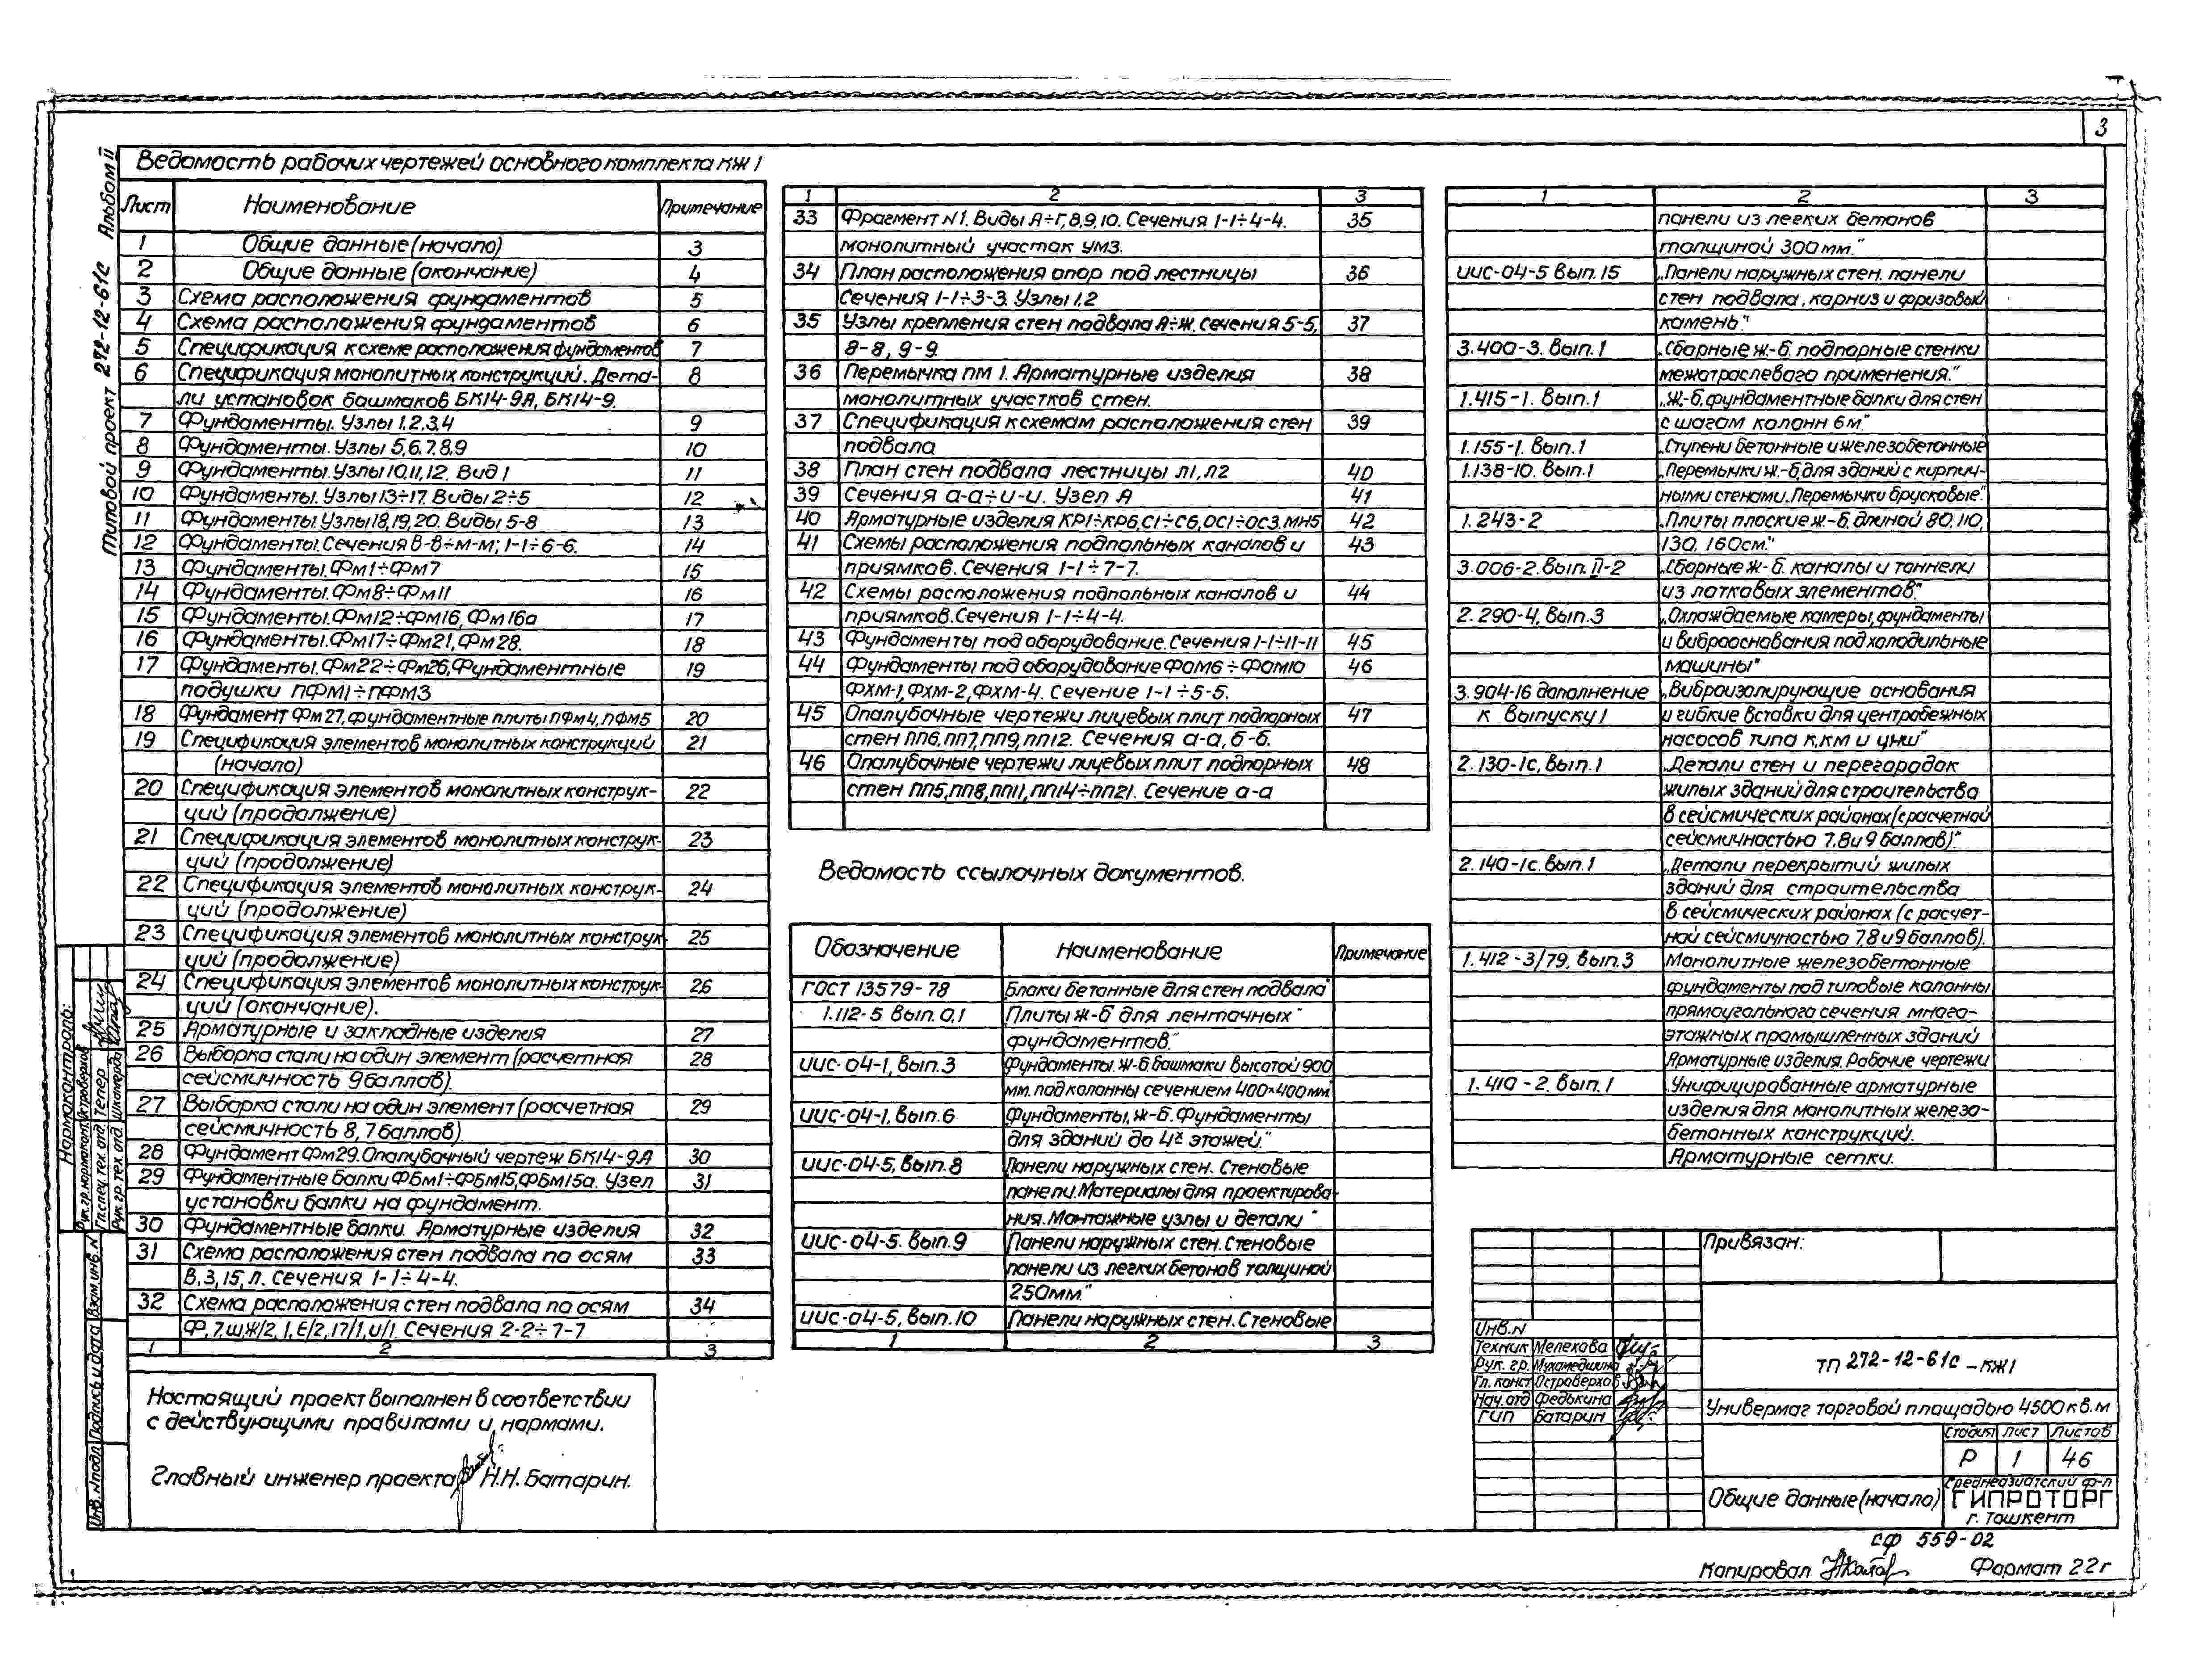 3
Альбом II
Типовой проект 272-12-61с
Ведомость рабочих чертежей основного комплекта КЖ 1
Лист Наименование Примечание
1 Общие данные (начало) 3
2 Общие данные (окончание) 4
3 Схема расположения фундаментов 5
4 Схема расположения фундаментов 6
5 Спецификация к схеме расположения фундаментов 7
6 Спецификация монолитных конструкций. Дета- 8
ли установок башмаков БК14-9А, БК14-9.
7 Фундаменты. Узлы 1,2,3,4 9
8 Фундаменты. Узлы 5,6,7,8,9 10
9 Фундаменты. Узлы 10,11,12. Вид 1 11
10 Фундаменты. Узлы 13÷17. Виды 2÷5 12
11 Фундаменты. Узлы 18,19,20. Виды 5-8 13
12 Фундаменты. Сечения В-В÷М-М; 1-1÷6-6. 14
13 Фундаменты. Фм1÷Фм7 15
14 Фундаменты. Фм8÷Фм11 16
15 Фундаменты. Фм12÷Фм16, Фм16а 17
16 Фундаменты. Фм17÷Фм21, Фм28. 18
17 Фундаменты. Фм22÷Фм26, Фундаментные 19
подушки ПФМ1÷ПФМ3
18 Фундамент Фм27, фундаментные плиты ПФм4, ПФм5 20
19 Спецификация элементов монолитных конструкций 21
(начало)
20 Спецификация элементов монолитных конструк- 22
ций (продолжение)
21 Спецификация элементов монолитных конструк- 23
ций (продолжение)
22 Спецификация элементов монолитных конструк- 24
ций (продолжение)
23 Спецификация элементов монолитных конструк- 25
ций (продолжение)
24 Спецификация элементов монолитных конструк- 26
ций (окончание).
25 Арматурные и закладные изделия 27
26 Выборка стали на один элемент (расчетная 28
сейсмичность 9 баллов).
27 Выборка стали на один элемент (расчетная 29
сейсмичность 8, 7 баллов).
28 Фундамент Фм29. Опалубочный чертеж БК14-9А 30
29 Фундаментные балки ФБм1÷ФБм15, ФБм15а. Узел 31
установки балки на фундамент.
30 Фундаментные балки. Арматурные изделия 32
31 Схема расположения стен подвала по осям 33
В, 3, 15, Л. Сечения 1-1÷4-4.
32 Схема расположения стен подвала по осям 34
Ф, 7, Ш, Ж/2, 1, Е/2, 17/1, И/1. Сечения 2-2÷7-7
1 2 3
Настоящий проект выполнен в соответствии
с действующими правилами и нормами.
Главный инженер проекта Н.Н. Батарин.
1 2 3
33 Фрагмент N1. Виды А÷Г, 8, 9, 10. Сечения 1-1÷4-4. 35
монолитный участок УМ3.
34 План расположения опор под лестницы 36
Сечения 1-1÷3-3. Узлы 1,2
35 Узлы крепления стен подвала А÷Ж. Сечения 5-5, 37
8-8, 9-9.
36 Перемычка ПМ 1. Арматурные изделия 38
монолитных участков стен.
37 Спецификация к схемам расположения стен 39
подвала
38 План стен подвала лестницы Л1, Л2 40
39 Сечения а-а÷и-и. Узел А 41
40 Арматурные изделия КР1÷КР6, С1÷С6, ОС1÷ОС3, МН5 42
41 Схемы расположения подпольных каналов и 43
приямков. Сечения 1-1÷7-7.
42 Схемы расположения подпольных каналов и 44
приямков. Сечения 1-1÷4-4.
43 Фундаменты под оборудование. Сечения 1-1÷11-11 45
44 Фундаменты под оборудование ФОМ6÷ФОМ10 46
ФХМ-1, ФХМ-2, ФХМ-4. Сечение 1-1÷5-5.
45 Опалубочные чертежи лицевых плит подпорных 47
стен ПП6, ПП7, ПП9, ПП12. Сечения а-а, б-б.
46 Опалубочные чертежи лицевых плит подпорных 48
стен ПП5, ПП8, ПП11, ПП14÷ПП21. Сечение а-а
Ведомость ссылочных документов.
Обозначение Наименование Примечание
ГОСТ 13579-78 „Блоки бетонные для стен подвала"
1.112-5 вып. 0,1 „Плиты ж-б для ленточных"
фундаментов."
ИИС-04-1, вып. 3 Фундаменты. Ж-б. башмаки высотой 900
мм. под колонны сечением 400×400 мм."
ИИС-04-1, вып. 6 „Фундаменты, ж-б. Фундаменты
для зданий до 4х этажей."
ИИС-04-5, вып. 8 „Панели наружных стен. Стеновые
панели. Материалы для проектирова-
ния. Монтажные узлы и детали"
ИИС-04-5. вып. 9 „Панели наружных стен. Стеновые
панели из легких бетонов толщиной
250мм."
ИИС-04-5, вып. 10 „Панели наружных стен. Стеновые
1 2 3
1 2 3
панели из легких бетонов
толщиной 300 мм."
ИИС-04-5 вып. 15 „Панели наружных стен. панели
стен подвала, карниз и фризовый
камень."
3.400-3. вып. 1 „Сборные ж-б. подпорные стенки
межотраслевого применения."
1.415-1. вып. 1 „Ж-б. фундаментные балки для стен
с шагом колонн 6 м."
1.155-1. вып. 1 „Ступени бетонные и железобетонные
1.138-10. вып. 1 „Перемычки ж-б, для зданий с кирпич-
ными стенами. Перемычки брусковые."
1. 243-2 „Плиты плоские ж-б. длиной 80, 110,
130, 160 см."
3.006-2. вып. II-2 „Сборные ж-б. каналы и тоннели
из лотковых элементов."
2.290-4, вып. 3 „Охлаждаемые камеры, фундаменты
и виброоснования под холодильные
машины"
3.904-16 дополнение „Виброизолирующие основания
к выпуску 1 и гибкие вставки для центробежных
насосов типа К, КМ и ЦНШ"
2.130-1с, вып. 1 „Детали стен и перегородок
жилых зданий для строительства
в сейсмических районах (с расчетной
сейсмичностью 7, 8 и 9 баллов)."
2.140-1с. вып. 1 „Детали перекрытий жилых
зданий для строительства
в сейсмических районах (с расчет-
ной сейсмичностью 7,8 и 9 баллов).
1.412-3/79, вып. 3 Монолитные железобетонные
фундаменты под типовые колонны
прямоугольного сечения много-
этажных промышленных зданий
Арматурные изделия. Рабочие чертежи
1.410-2. вып. 1 „Унифицированные арматурные
изделия для монолитных железо-
бетонных конструкций.
Арматурные сетки.
Нормоконтроль:
Рук. гр. нормоконт. Островерхов
Гл. спец. тех. отд. Тепер
Рук. гр. тех. отд. Шкамарда
Инв. N подл. Подпись и дата Взам. инв. N
Привязан:
Инв. N
Техник Мелехова
Рук. гр. Мухамедшина
Гл. конст. Островерхов
Нач. отд Федькина
ГИП Батарин
ТП 272-12-61с - КЖ1
Универмаг торговой площадью 4500 кв. м
Стадия Лист Листов
Р 1 46
Общие данные (начало)
Среднеазиатский ф-л
ГИПРОТОРГ
г. Ташкент
СФ 559-02
Копировал Формат 22г